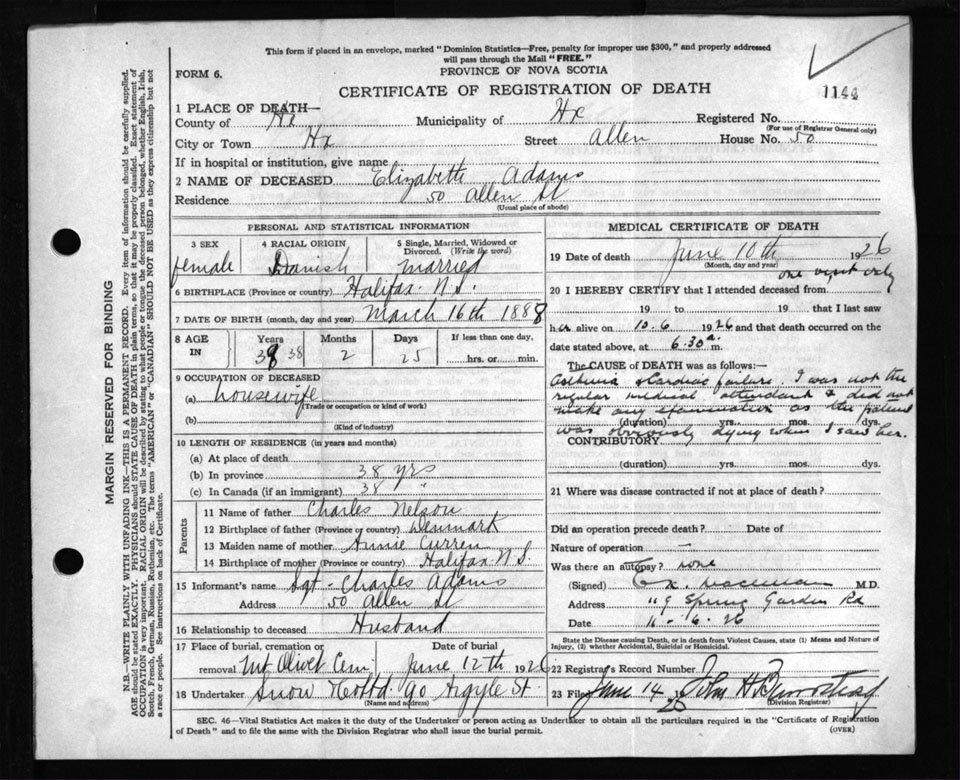 This form if placed in an envelope, marked "Dominion Statistics—Free, penalty for improper use $300," and properly addressed
will pass through the Mail "FREE."
FORM 6.
PROVINCE OF NOVA SCOTIA
CERTIFICATE OF REGISTRATION OF DEATH
1144
1 PLACE OF DEATH—
County of Hx Municipality of Hx Registered No.
(For use of Registrar General only)
City or Town Hx Street Allen House No. 50
If in hospital or institution, give name
2 NAME OF DECEASED Elizabeth Adams
Residence 50 Allen St
(Usual place of abode)
PERSONAL AND STATISTICAL INFORMATION
3 SEX 4 RACIAL ORIGIN 5 Single, Married, Widowed or
Divorced. (Write the word)
female Danish married
6 BIRTHPLACE (Province or country) Halifax N.S.
7 DATE OF BIRTH (month, day and year) March 16th 1888
8 AGE IN Years Months Days If less than one day,
38 38 2 25 hrs. or min.
9 OCCUPATION OF DECEASED
(a) housewife
(Trade or occupation or kind of work)
(b)
(Kind of industry)
10 LENGTH OF RESIDENCE (in years and months)
(a) At place of death
(b) In province 38 yrs
(c) In Canada (if an immigrant) 38 "
Parents
11 Name of father Charles Nelson
12 Birthplace of father (Province or country) Denmark
13 Maiden name of mother Annie Curren
14 Birthplace of mother (Province or country) Halifax N.S.
15 Informant's name Sgt - Charles Adams
Address 50 Allen St
16 Relationship to deceased Husband
17 Place of burial, cremation or Date of burial
removal Mt Olivet Cem June 12th 1926
18 Undertaker Snow & Co Ltd. 90 Argyle St.
(Name and address)
MEDICAL CERTIFICATE OF DEATH
19 Date of death June 10th 1926
(Month, day and year)
one visit only
20 I HEREBY CERTIFY that I attended deceased from
19 to 19 that I last saw
her alive on 10.6 1926 and that death occurred on the
date stated above, at 6.30 a. m.
The CAUSE of DEATH was as follows:
Asthma & Cardiac failure. I was not the
regular medical attendant & did not
make any examination as the patient
(duration) yrs. mos. dys.
was obviously dying when I saw her.
CONTRIBUTORY
(duration) yrs. mos. dys.
21 Where was disease contracted if not at place of death?
Did an operation precede death? Date of
Nature of operation —
Was there an autopsy? none
(Signed) M.D.
Address 119 Spring Garden Rd
Date 11-6-26
State the Disease causing Death, or in death from Violent Causes, state (1) Means and Nature of
Injury, (2) whether Accidental, Suicidal or Homicidal.
22 Registrar's Record Number
23 Filed June 14 19 26 John H.
(Division Registrar)
SEC. 46—Vital Statistics Act makes it the duty of the Undertaker or person acting as Undertaker to obtain all the particulars required in the "Certificate of Registration
of Death" and to file the same with the Division Registrar who shall issue the burial permit.
(OVER)
MARGIN RESERVED FOR BINDING
N.B.—WRITE PLAINLY WITH UNFADING INK—THIS IS A PERMANENT RECORD. Every item of information should be carefully supplied.
AGE should be stated EXACTLY. PHYSICIANS should STATE CAUSE OF DEATH in plain terms, so that it may be properly classified. Exact statement of
OCCUPATION is very important. RACIAL ORIGIN will be described by stating to what people or tongue the deceased person belonged, whether English, Irish,
Scotch, French, German, Russian, Ruthenian, etc. The terms "AMERICAN" or "CANADIAN" SHOULD NOT BE USED as they express citizenship but not
a race or people. See instructions on back of Certificate.